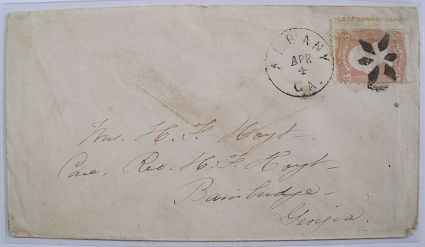 ALBANY
APR
4
GA.
Mrs. H. F. Hoyt –
Care, Rev. H. F. Hoyt –
Bainbridge –
Georgia.